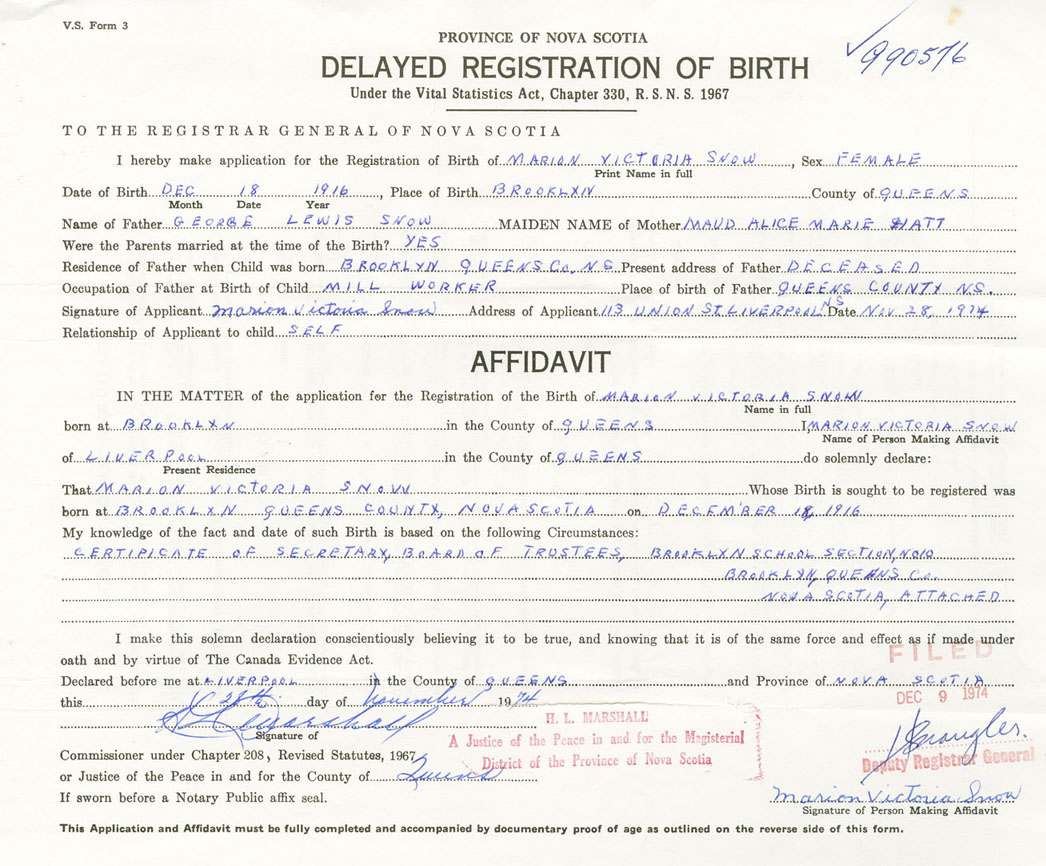 V.S. Form 3
PROVINCE OF NOVA SCOTIA
990576
DELAYED REGISTRATION OF BIRTH
Under the Vital Statistics Act, Chapter 330, R. S. N. S. 1967
TO THE REGISTRAR GENERAL OF NOVA SCOTIA
I hereby make application for the Registration of Birth of MARION VICTORIA SNOW, Sex FEMALE
Print Name in full
Date of Birth DEC 18 1916, Place of Birth BROOKLYN County of QUEENS
Month Date Year
Name of Father GEORGE LEWIS SNOW MAIDEN NAME of Mother MAUD ALICE MARIE HATT
Were the Parents married at the time of the Birth? YES
Residence of Father when Child was born BROOKLYN QUEENS Co. NS Present address of Father DECEASED
Occupation of Father at Birth of Child MILL WORKER Place of birth of Father QUEENS COUNTY NS.
Signature of Applicant Marion Victoria Snow Address of Applicant 113 UNION ST LIVERPOOL NS Date NOV 28, 1974
Relationship of Applicant to child SELF
AFFIDAVIT
IN THE MATTER of the application for the Registration of the Birth of MARION VICTORIA SNOW
Name in full
born at BROOKLYN in the County of QUEENS I, MARION VICTORIA SNOW
Name of Person Making Affidavit
of LIVERPOOL in the County of QUEENS do solemnly declare:
Present Residence
That MARION VICTORIA SNOW Whose Birth is sought to be registered was
born at BROOKLYN QUEENS COUNTY, NOVA SCOTIA on DECEMBER 18, 1916
My knowledge of the fact and date of such Birth is based on the following Circumstances:
CERTIFICATE OF SECRETARY, BOARD OF TRUSTEES, BROOKLYN SCHOOL SECTION, NO10
BROOKLYN, QUEENS Co.
NOVA SCOTIA, ATTACHED
I make this solemn declaration conscientiously believing it to be true, and knowing that it is of the same force and effect as if made under
oath and by virtue of The Canada Evidence Act.
FILED
Declared before me at LIVERPOOL in the County of QUEENS and Province of NOVA SCOTIA
DEC 9 1974
this 28th day of November 1974
H L Marshall
Signature of
H. L. MARSHALL
A Justice of the Peace in and for the Magisterial
District of the Province of Nova Scotia
Deputy Registrar General
Commissioner under Chapter 208, Revised Statutes, 1967
or Justice of the Peace in and for the County of Queens
If sworn before a Notary Public affix seal.
Marion Victoria Snow
Signature of Person Making Affidavit
This Application and Affidavit must be fully completed and accompanied by documentary proof of age as outlined on the reverse side of this form.